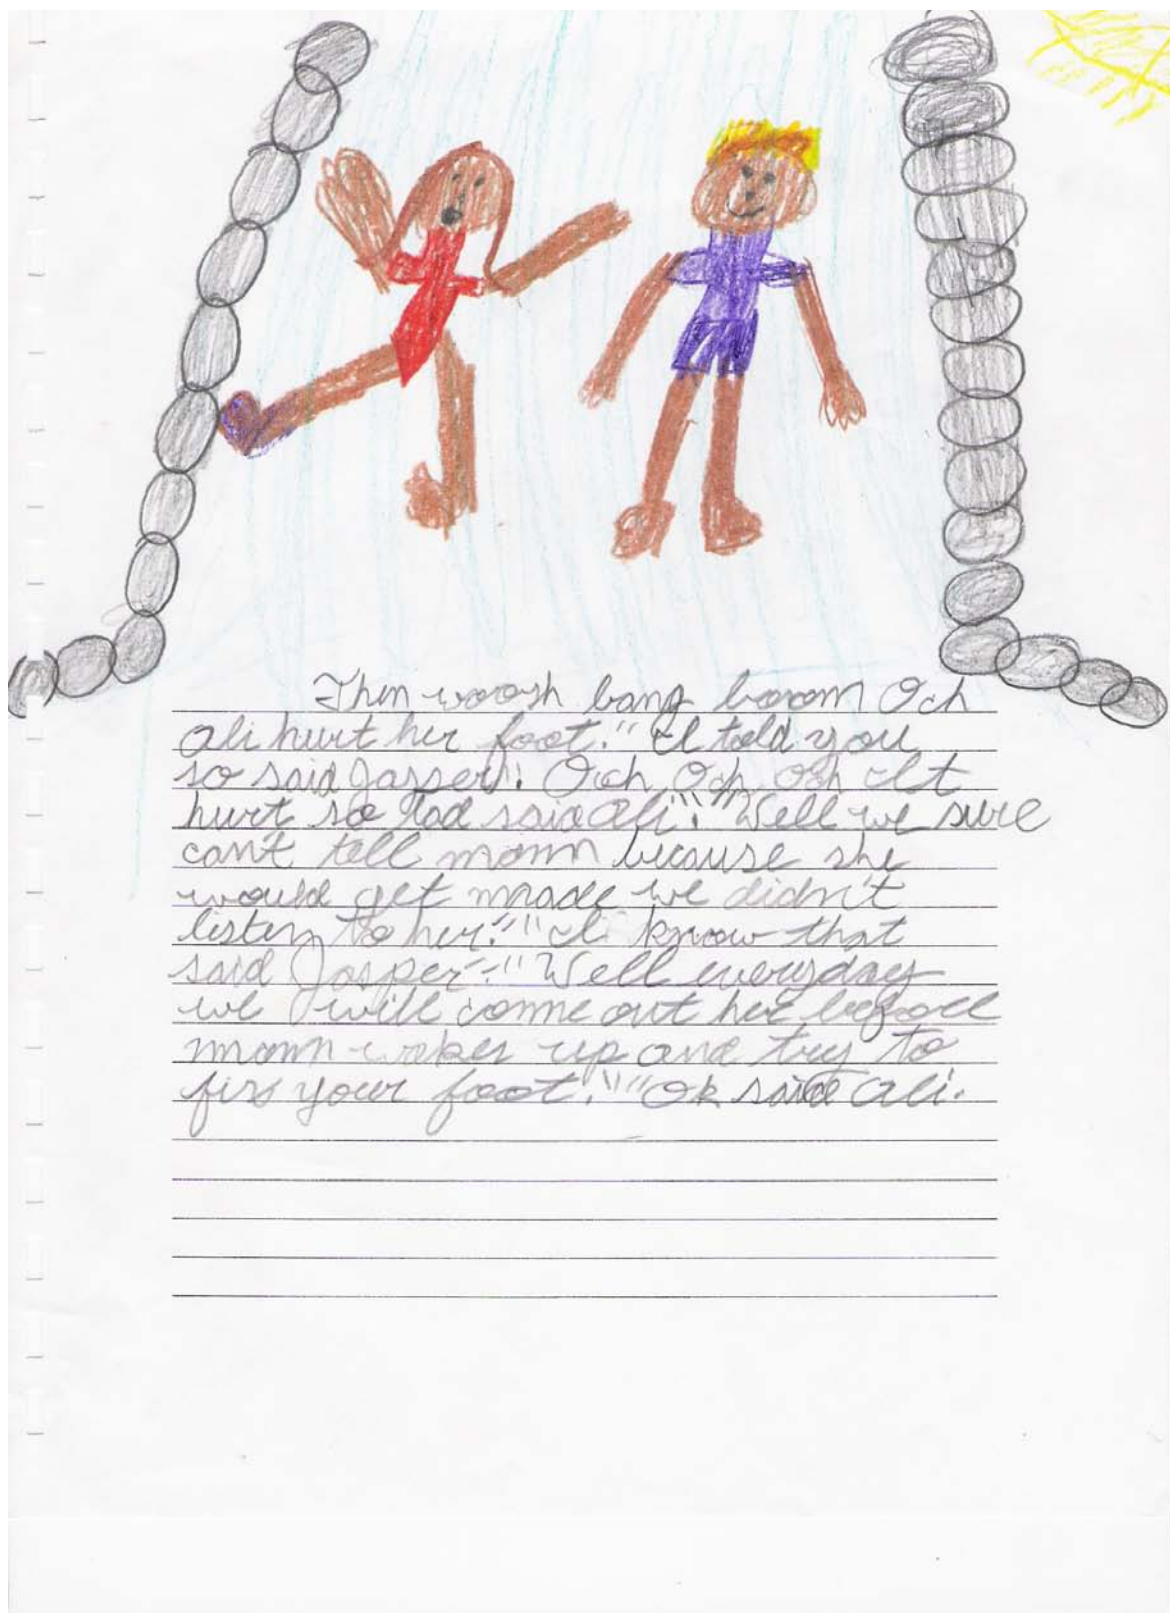 Then woosh bang booom Och
Ali hurt her foot." "I told you
so said Jasper". Och, Och, Och It
hurt so bad said Ali"." "Well we sure
can't tell mom because she
would get made we didn't
listen to her." "I know that
said Jasper"." "Well everyday
we will come out her before
mom wakes up and try to
fix your foot." "Ok said Ali.